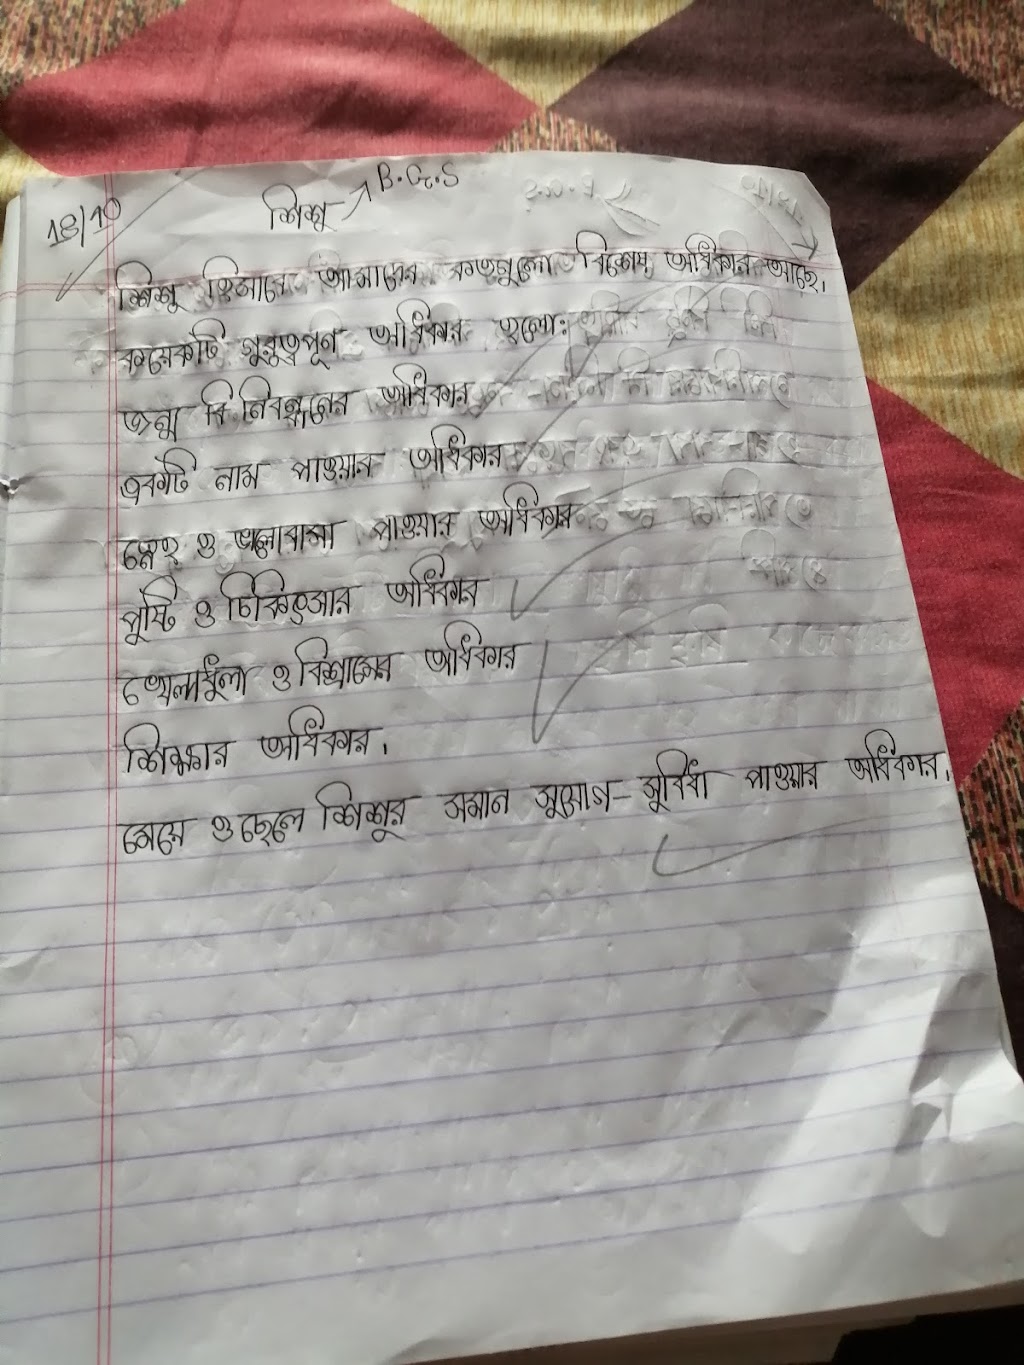 18/10
শিশু → B.G.S
শিশু হিসাবে আমাদের কতগুলো বিশেষ অধিকার আছে।
কয়েকটি গুরুত্বপূর্ণ অধিকার হলো:
জন্ম নিবন্ধনের অধিকার
একটি নাম পাওয়ার অধিকার
স্নেহ ও ভালোবাসা পাওয়ার অধিকার
পুষ্টি ও চিকিৎসার অধিকার
খেলাধুলা ও বিশ্রামের অধিকার
শিক্ষার অধিকার।
মেয়ে ও ছেলে শিশুর সমান সুযোগ-সুবিধা পাওয়ার অধিকার।